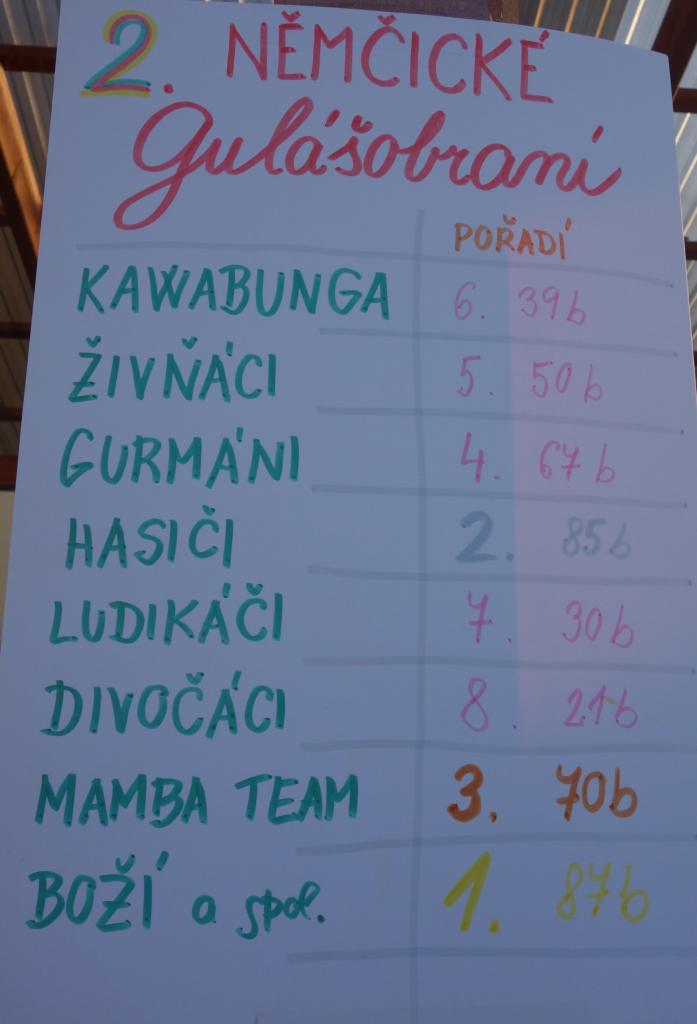 2. NĚMČICKÉ
Gulášobraní
POŘADÍ
KAWABUNGA 6. 39b
ŽIVŇÁCI 5. 50b
GURMÁNI 4. 67b
HASIČI 2. 85b
LUDIKÁČI 7. 30b
DIVOČÁCI 8. 21b
MAMBA TEAM 3. 70b
BOŽÍ a spol. 1. 87b